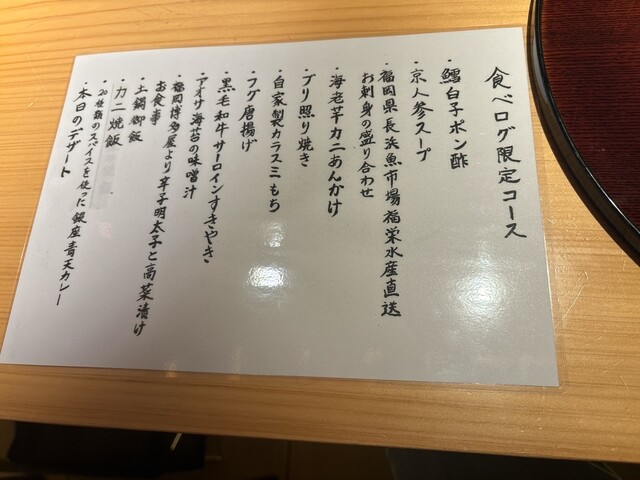 食べログ限定コース
・鱈白子ポン酢
・京人参スープ
・福岡県長浜魚市場福栄水産直送
お刺身の盛り合わせ
・海老芋カニあんかけ
・ブリ照り焼き
・自家製カラスミもち
・フグ唐揚げ
・黒毛和牛サーロインすきやき
・アオサ海苔の味噌汁
・福岡博多屋より辛子明太子と高菜漬け
お食事
・土鍋御飯
・カニ焼飯
・20種類のスパイスを使った銀座青天カレー
・本日のデザート